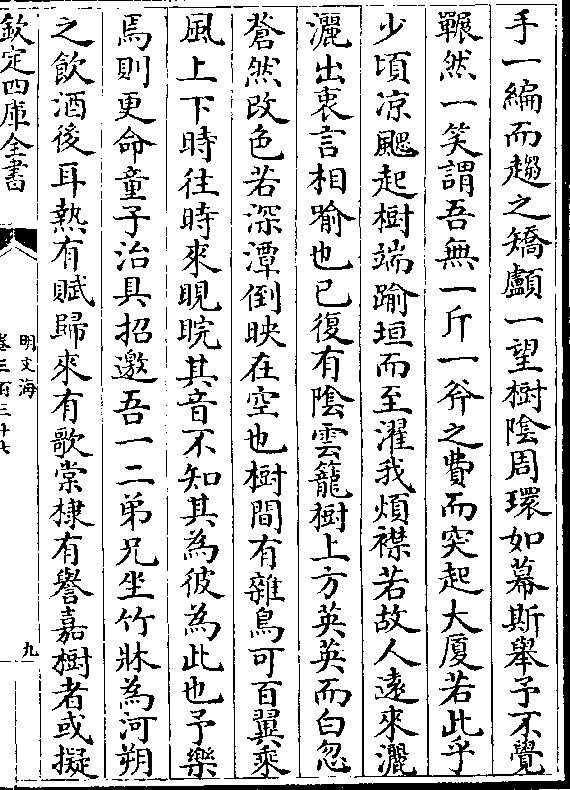 手一編而趨之矯顱一望樹陰周環如幕斯舉予不覺
囅然一笑謂吾無一斤一斧之費而突起大厦若此乎
少頃凉颸起樹端踰垣而至濯我煩襟若故人遠來灑
灑出衷言相喻也已復有陰雲籠樹上方英英而白忽
蒼然改色若深潭倒映在空也樹間有雜鳥可百翼乘
風上下時往時來睍睆其音不知其為彼為此也予樂
焉則更命童子治具招邀吾一二弟兄坐竹牀為河朔
之飲酒後耳熱有賦歸來有歌棠棣有譽嘉樹者或擬
欽定四庫全書
明文海
卷三百三十七
九